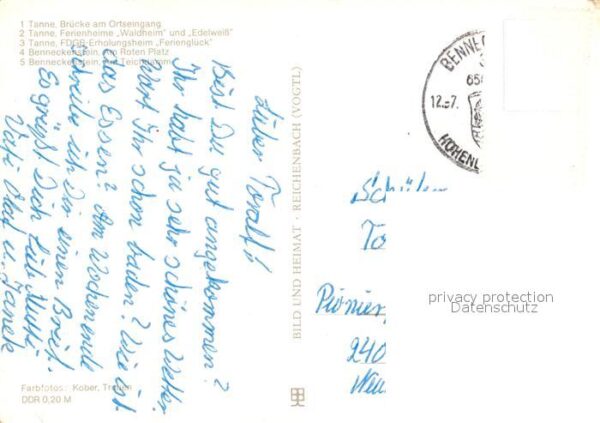 1 Tanne, Brücke am Ortseingang
2 Tanne, Ferienheime „Waldheim" und „Edelweiß"
3 Tanne, FDGB-Erholungsheim „Ferienglück"
4 Benneckenstein, am Roten Platz
5 Benneckenstein, am
Lieber Toralf!
Bist Du gut angekommen?
Ihr habt ja sehr schönes Wetter.
Wart Ihr schon baden? Wie ist
das Essen? Am Wochenende
schreibe ich Dir einen Brief.
Es grüßt Dich lieb Mutti
Olaf u.
Farbfotos: Kober, Treuen
DDR 0,20 M
BILD UND HEIMAT · REICHENBACH (VOGTL)
BENNEC
12.-7.
HOHENL
Schüler
To
Pionier
240
privacy protection
Datenschutz